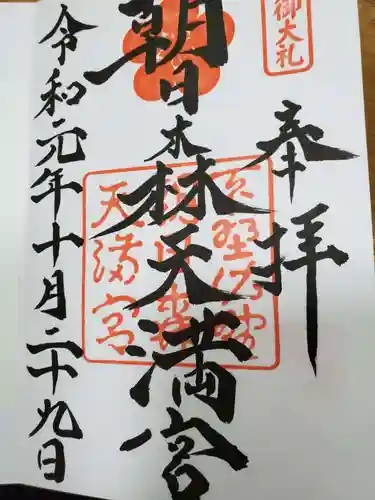 御大礼
奉拝
朝日森天満宮
令和元年十月二十九日
天満宮